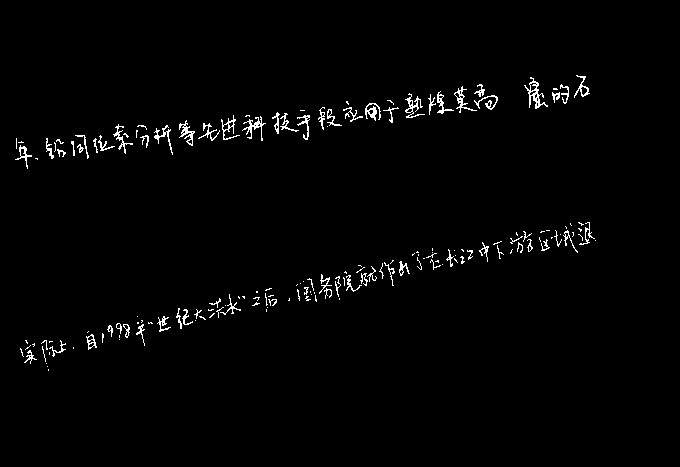 年、铅同位素分析等先进科技手段应用于敦煌莫高窟的石
实际上,自1998年“世纪大洪水”之后,国务院就作出了在长江中下游区域退